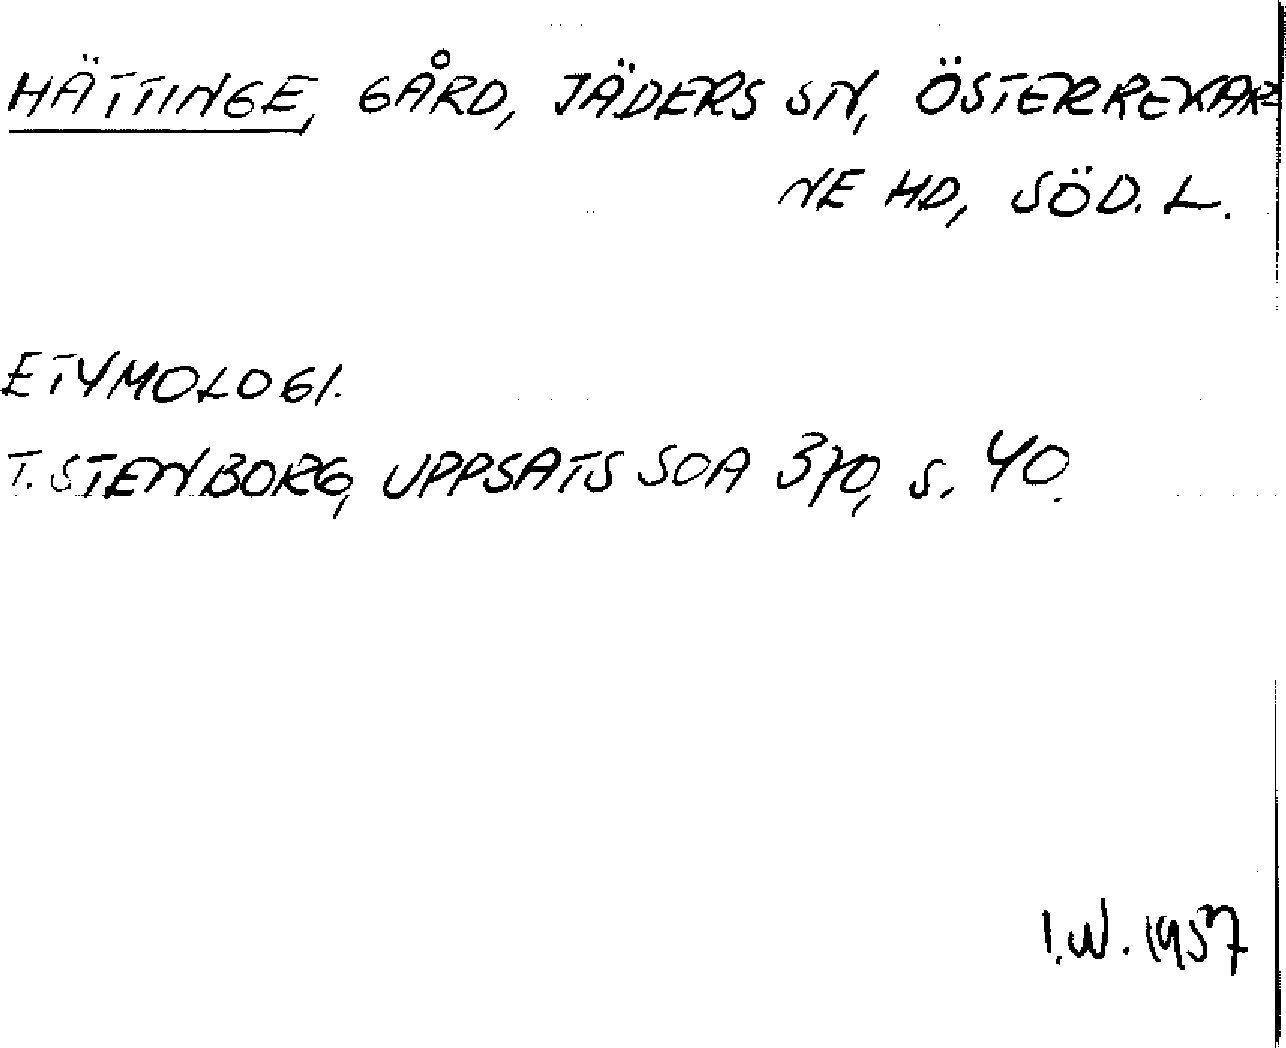 HÄTTINGE, GÅRD, JÄDERS SN, ÖSTERREKAR-
NE HD, SÖD. L.
ETYMOLOGI.
T. STENBORG, UPPSATS SOA 370, S. 40.
I.W. 1957